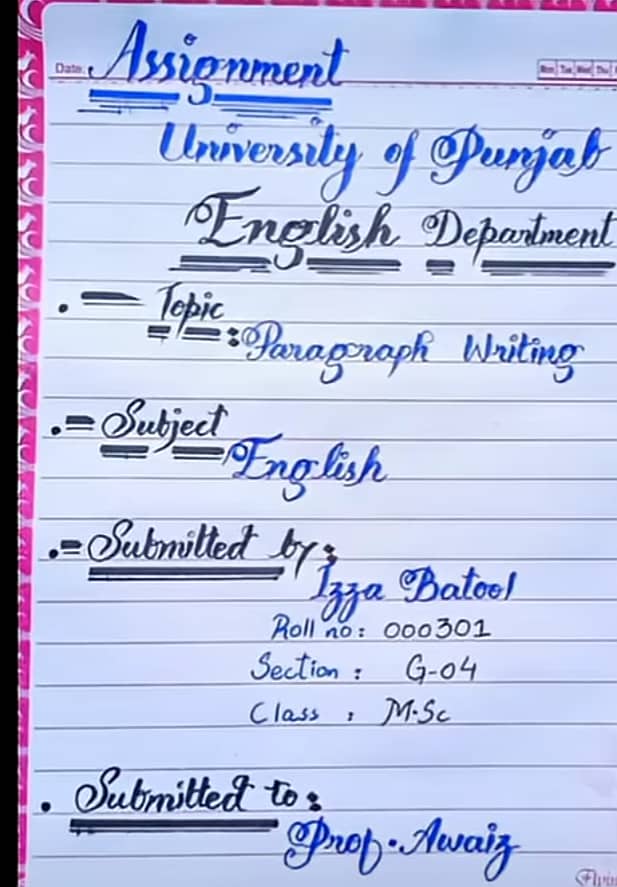 Date:
Assignment
Mon Tue Wed Thu
University of Punjab
English Department
Topic
:Paragraph Writing
Subject
English
Submitted by:
Izza Batool
Roll no: 000301
Section : G-04
Class : M.Sc
Submitted to:
Prof. Awaiz